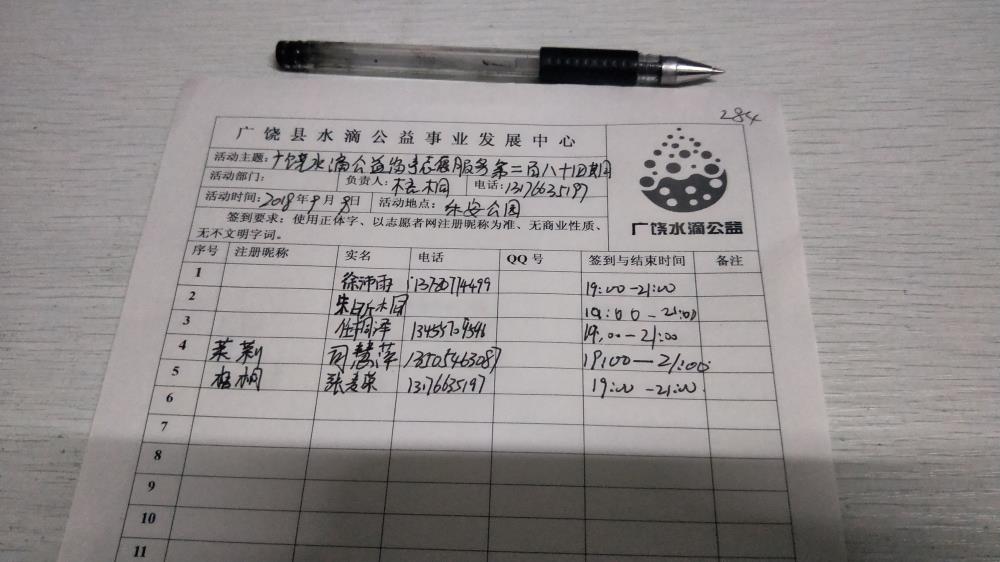 284
广饶县水滴公益事业发展中心
活动主题:广饶水滴公益 志愿服务第二百八十四期
活动部门: 负责人:梧桐 电话:13176635197
活动时间:2018年9月8日 活动地点:乐安公园
签到要求:使用正体字、以志愿者网注册昵称为准、无商业性质、
无不文明字词。
广饶水滴公益
序号 注册昵称 实名 电话 QQ号 签到与结束时间 备注
1 徐沛雨 13780774499 19:00-21:00
2 朱 19:00-21:00
3 任 泽 19:00-21:00
4 茉莉 司慧萍 13505463087 19:00-21:00
5 梧桐 张 荣 13176635197 19:00-21:00
6
7
8
9
10
11